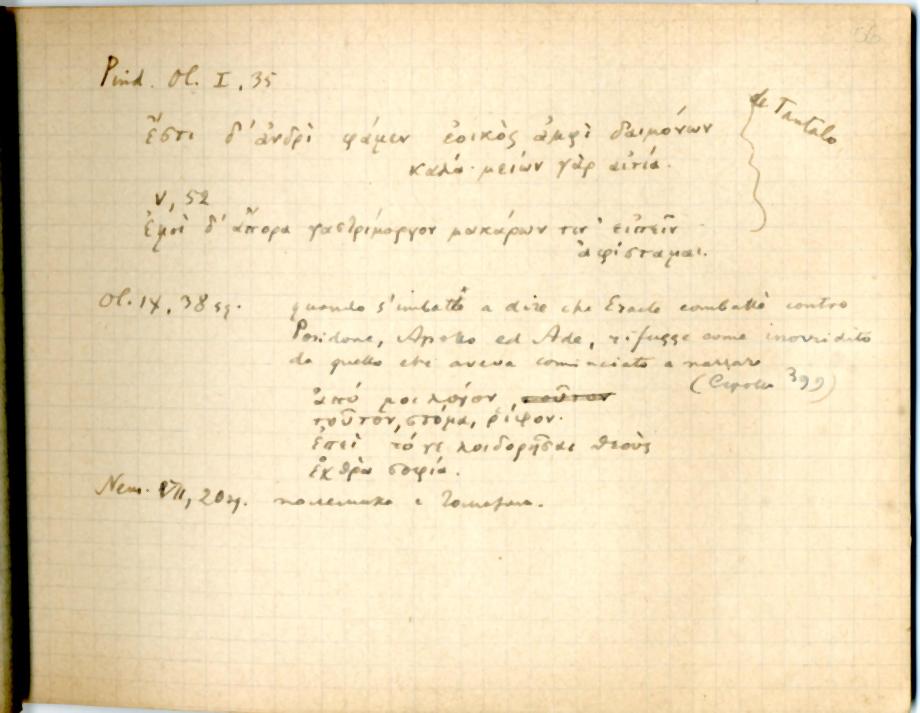 56
Pind. Ol. I, 35
ἔστι δ' ἀνδρὶ φάμεν ἐοικὸς ἀμφὶ δαιμόνων
καλά· μείων γὰρ αἰτία.
de Tantalo
v, 52
ἐμοὶ δ' ἄπορα γαστρίμαργον μακάρων τιν' εἰπεῖν
ἀφίσταμαι.
Ol. IX, 38 sg. quando s'imbatté a dire che Eracle combatté contro
Posidone, Apollo ed Ade, rifugge come inorridito
da quello che aveva cominciato a narrare
(399)
ἀπό μοι λόγον τοῦτον
τοῦτον, στόμα, ῥῖψον·
ἐπεὶ τό γε λοιδορῆσαι θεοὺς
ἐχθρὰ σοφία.
Nem. VII, 20 sg.